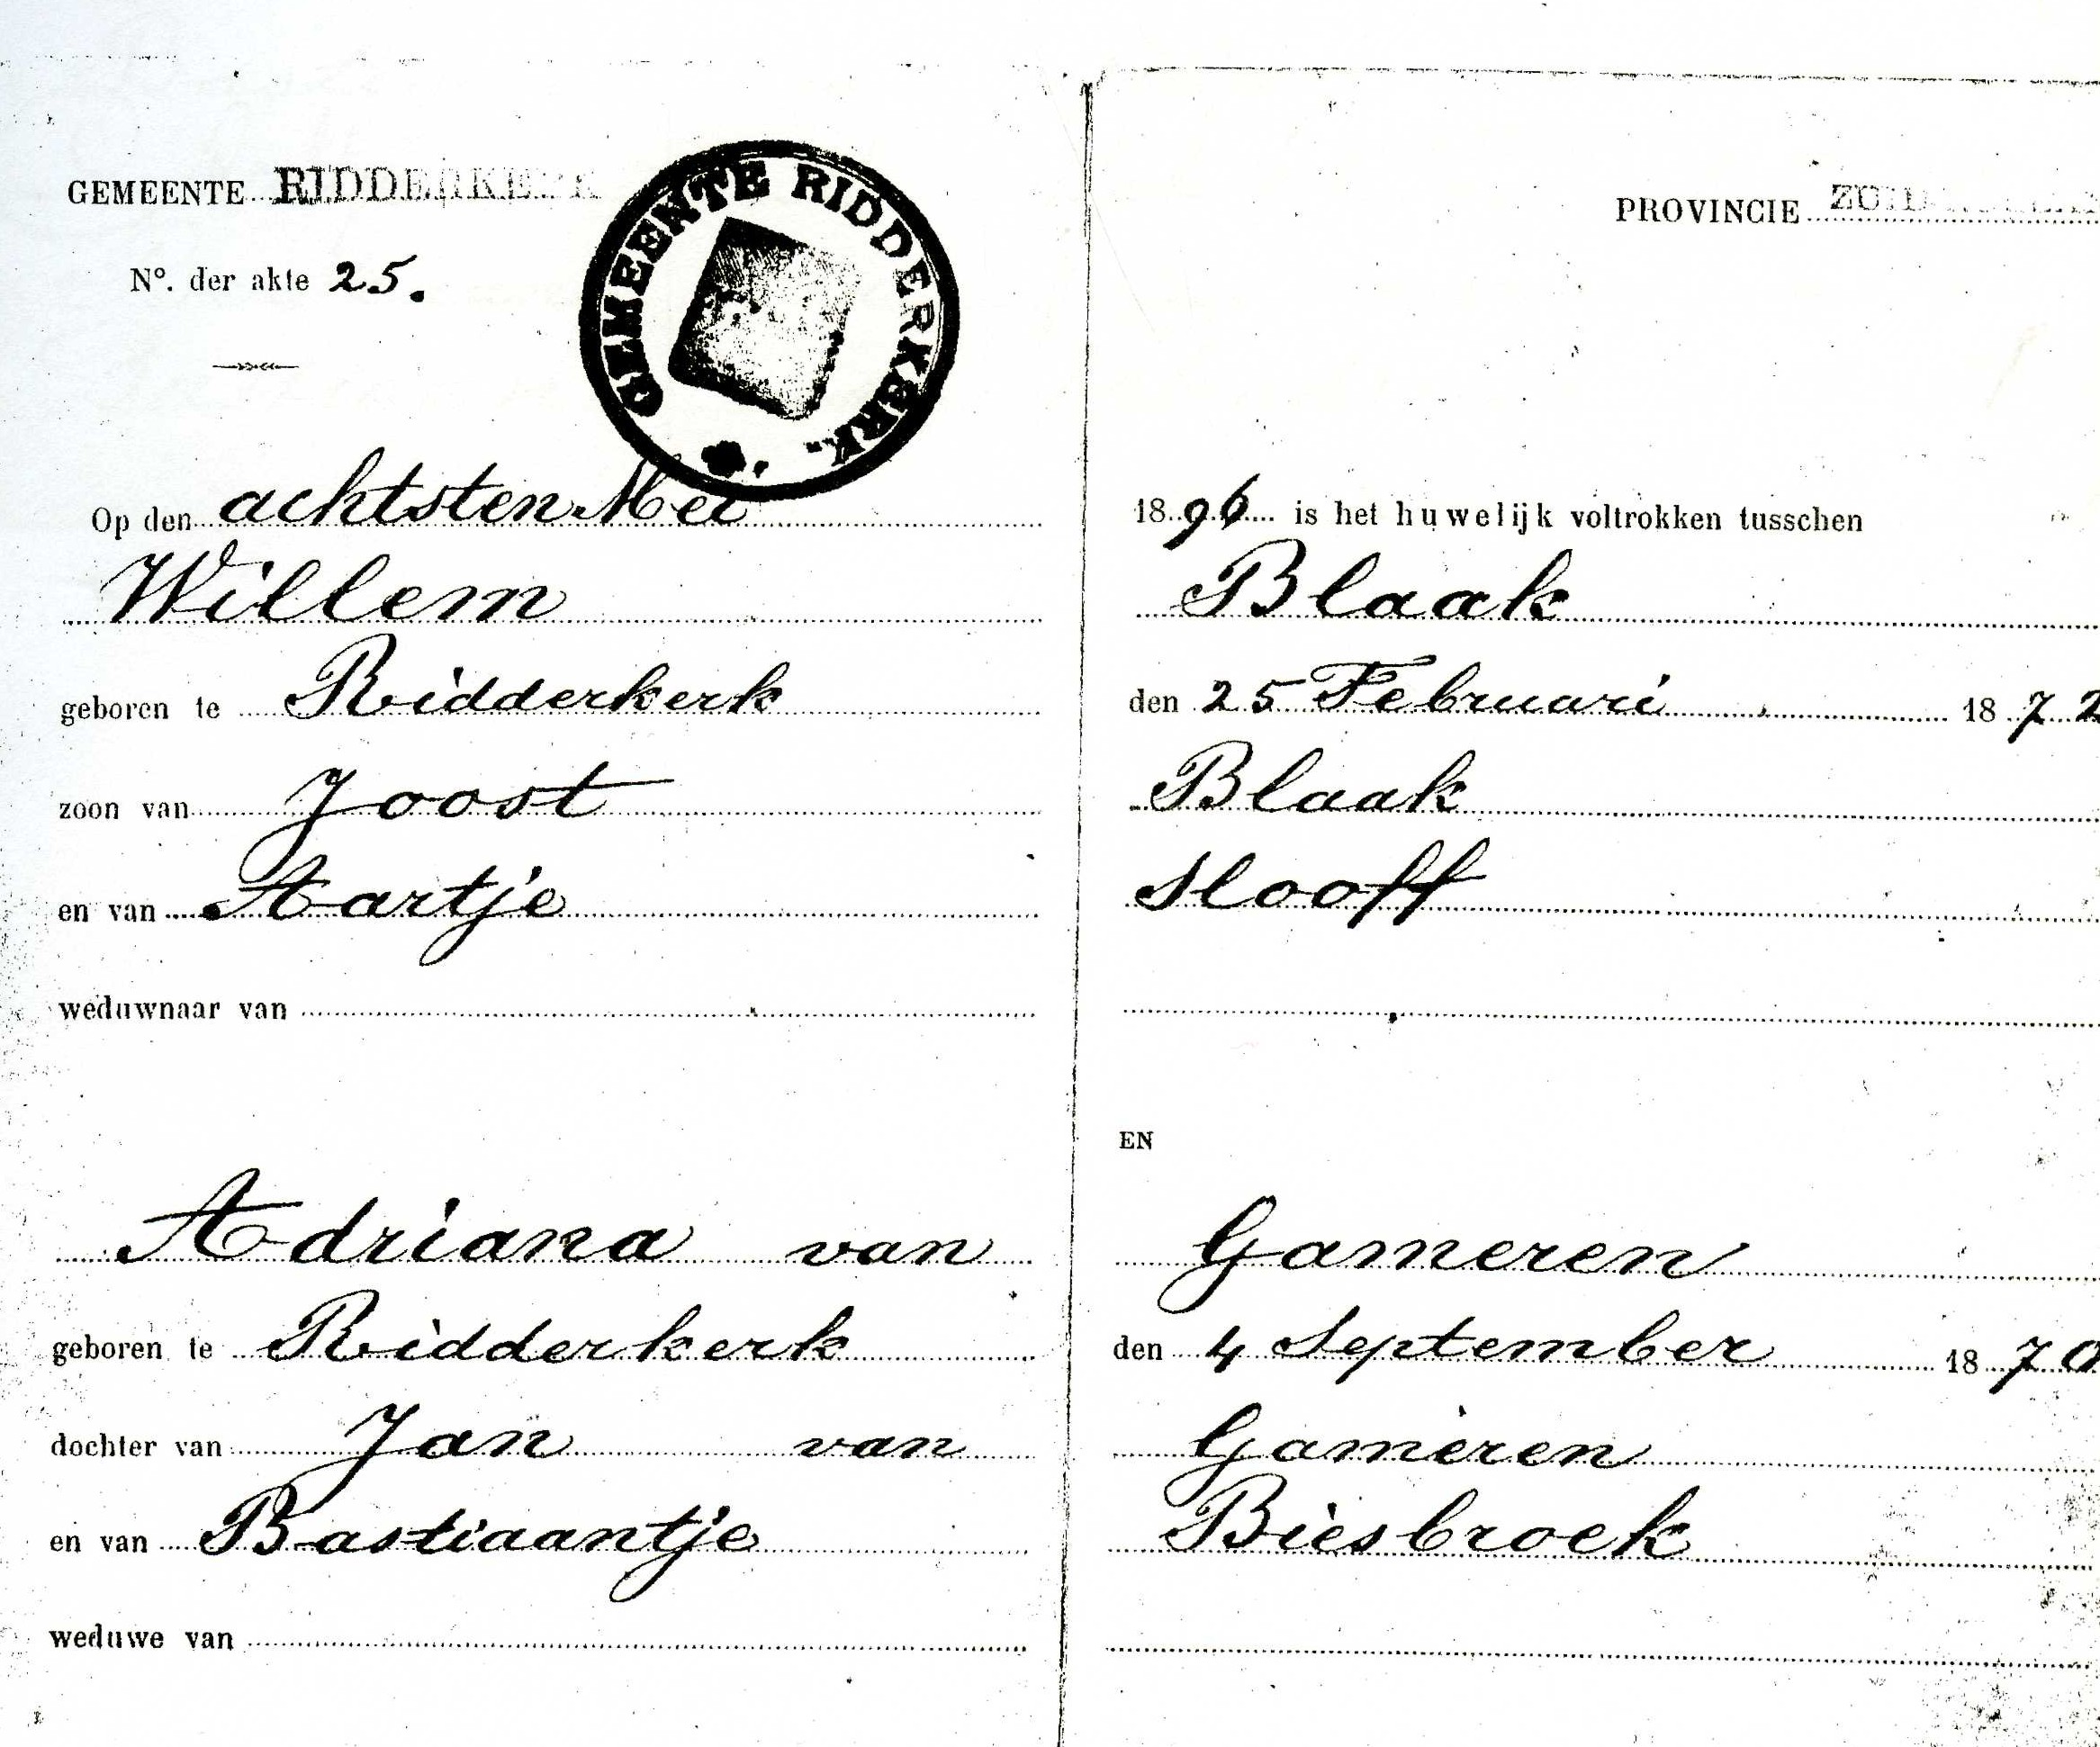 GEMEENTE RIDDERKERK
PROVINCIE
N°. der akte 25.
GEMEENTE RIDDERKERK.
Op den achtsten Mei 1896 is het huwelijk voltrokken tusschen
Willem Blaak
geboren te Ridderkerk den 25 Februari 1872
zoon van Joost Blaak
en van Aartje Slooff
weduwnaar van
EN
Adriana van Gameren
geboren te Ridderkerk den 4 September 1870
dochter van Jan van Gameren
en van Bastiaantje Biesbroek
weduwe van